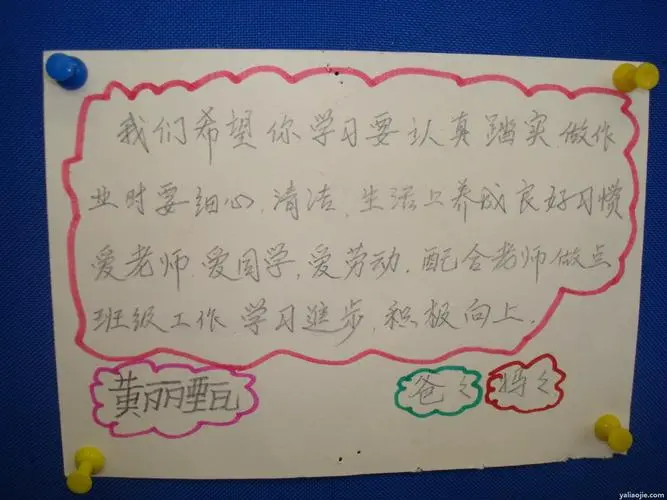 我们希望你学习要认真踏实.做作
业时要细心.清洁.生活上养成良好习惯
爱老师.爱同学.爱劳动.配合老师做点
班级工作.学习进步.积极向上.
黄丽
爸々 妈々
yaliaojie.com